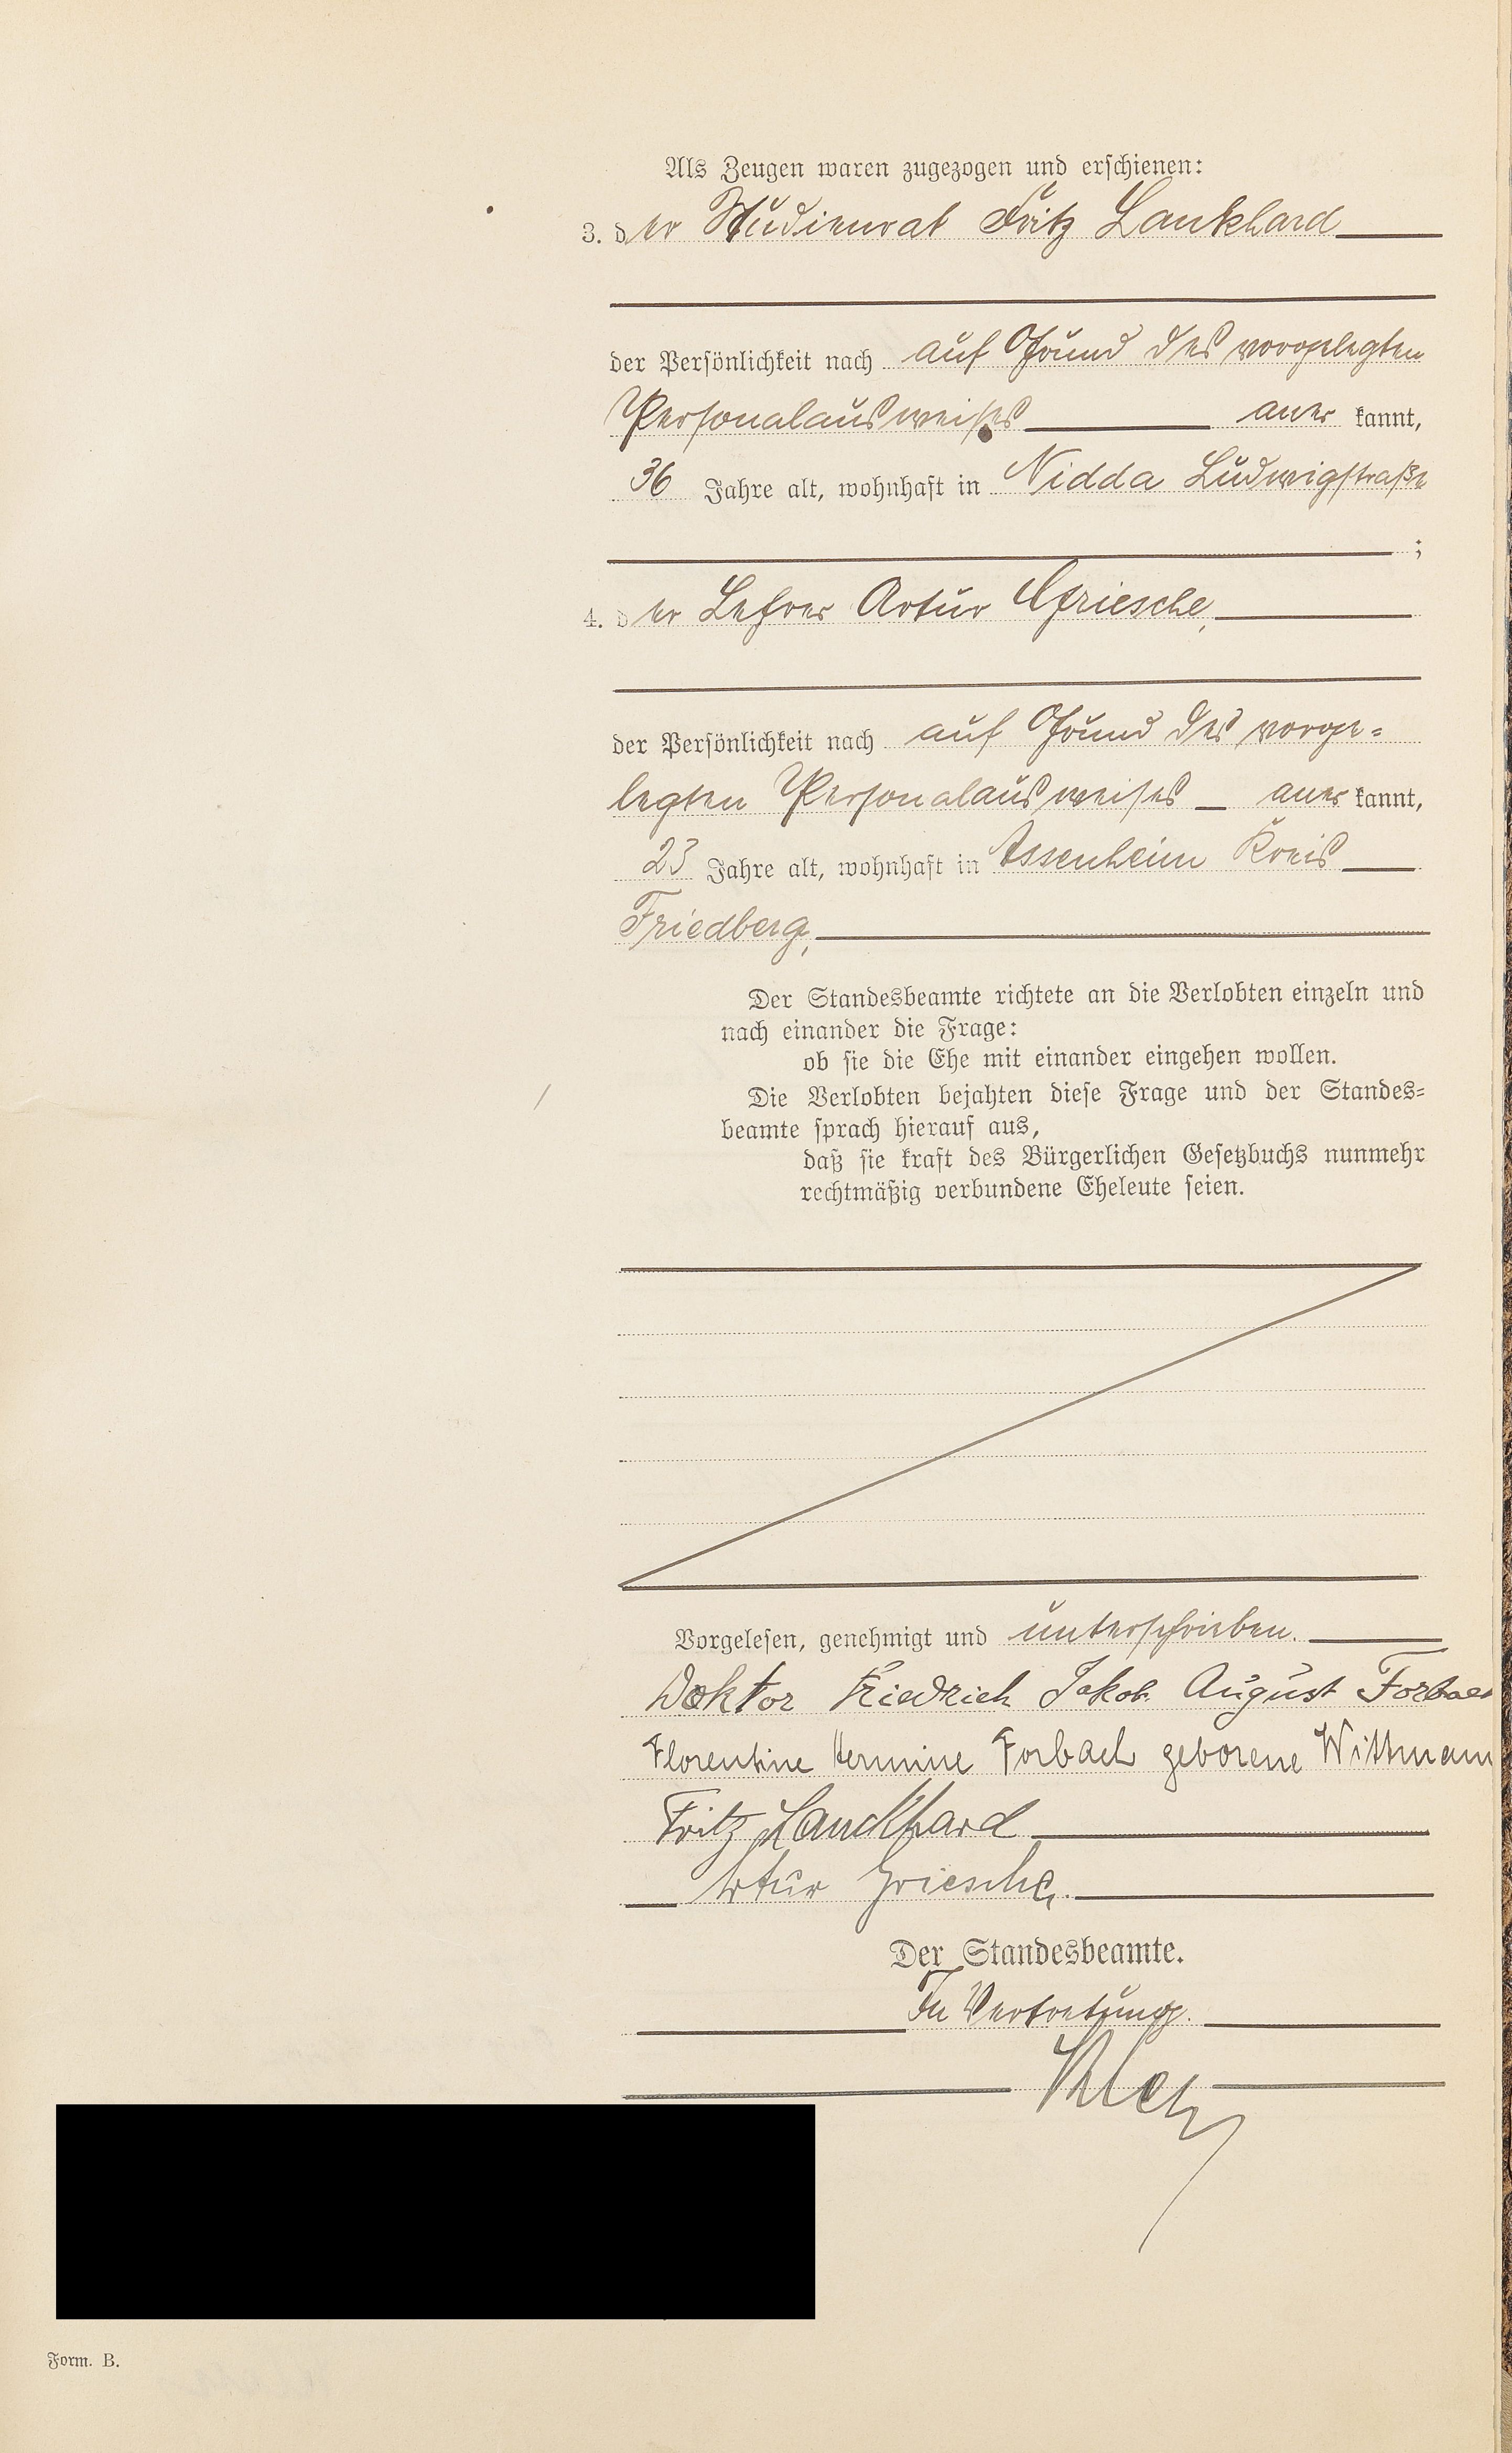 Als Zeugen waren zugezogen und erschienen:
3. der Studienrat Fritz Lankhard
der Persönlichkeit nach auf Grund des vorgelegten
Personalausweises anerkannt,
36 Jahre alt, wohnhaft in Nidda Ludwigstraße
;
4. der Lehrer Artur Griesche,
der Persönlichkeit nach auf Grund des vorge=
legten Personalausweises anerkannt,
23 Jahre alt, wohnhaft in Assenheim Kreis
Friedberg,
Der Standesbeamte richtete an die Verlobten einzeln und
nach einander die Frage:
ob sie die Ehe mit einander eingehen wollen.
Die Verlobten bejahten diese Frage und der Standes=
beamte sprach hierauf aus,
daß sie kraft des Bürgerlichen Gesetzbuchs nunmehr
rechtmäßig verbundene Eheleute seien.
Vorgelesen, genehmigt und unterschrieben.
Doktor Friedrich Jakob August Forbach
Florentine Hermine Forbach geborene Wittmann
Fritz Lanckhard
Artur Griesche.
Der Standesbeamte.
In Vertretung.
Form. B.